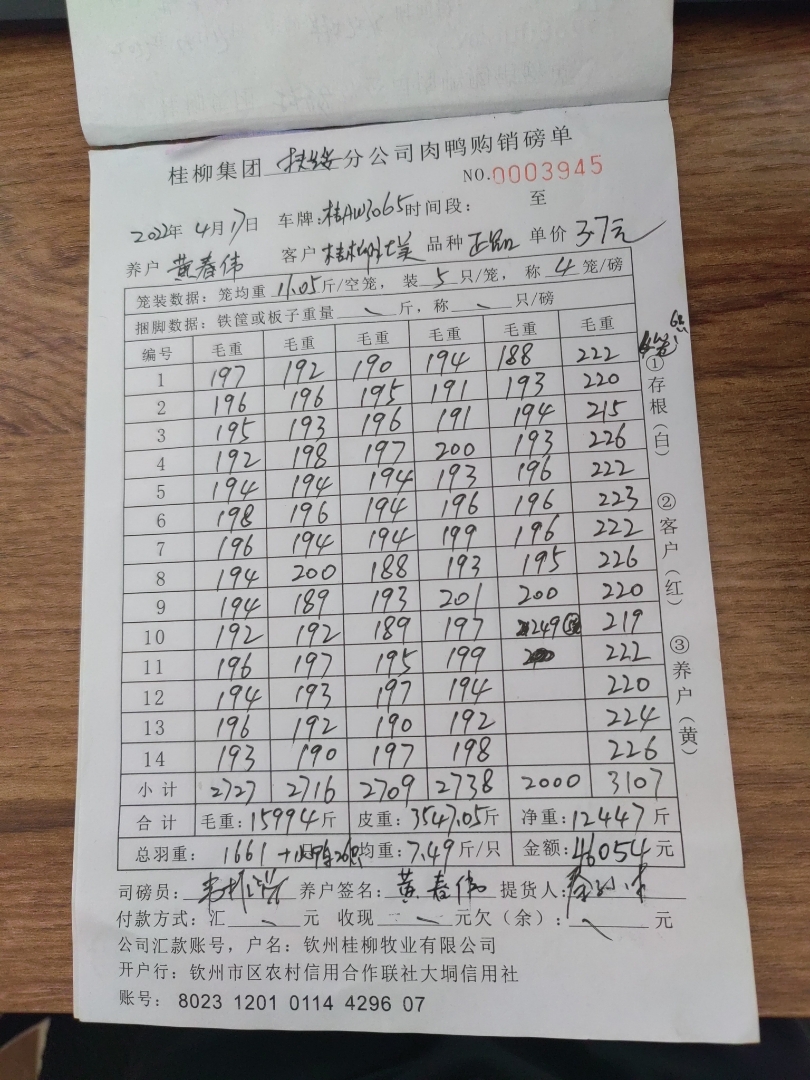 桂柳集团 扶绥 分公司肉鸭购销磅单
NO.0003945
2022年 4月17日 车牌:桂AW3065 时间段: 至
养户 黄春伟 客户 桂柳 品种 单价 3.7元
笼装数据:笼均重 11.05 斤/空笼, 装 5 只/笼, 称 4 笼/磅
捆脚数据:铁筐或板子重量 斤,称 只/磅
编号 毛重 毛重 毛重 毛重 毛重 毛重
1 197 192 190 194 188 222
2 196 196 195 191 193 220
3 195 193 196 191 194 215
4 192 198 197 200 193 226
5 194 194 194 193 196 222
6 198 196 194 196 196 223
7 196 194 194 199 196 222
8 194 200 188 193 195 226
9 194 189 193 201 200 220
10 192 192 189 197 249 219
11 196 197 195 199 222
12 194 193 197 194 220
13 196 192 190 192 224
14 193 190 197 198 226
小计 2727 2716 2709 2738 2000 3107
合计 毛重:15994斤 皮重:3547.05斤 净重:12447斤
总羽重: 1661 均重:7.49斤/只 金额:46054元
司磅员: 养户签名:黄春伟 提货人:
付款方式:汇 元 收现 元欠(余): 元
公司汇款账号,户名:钦州桂柳牧业有限公司
开户行:钦州市区农村信用合作联社大垌信用社
账号: 8023 1201 0114 4296 07
①存根(白)
②客户(红)
③养户(黄)